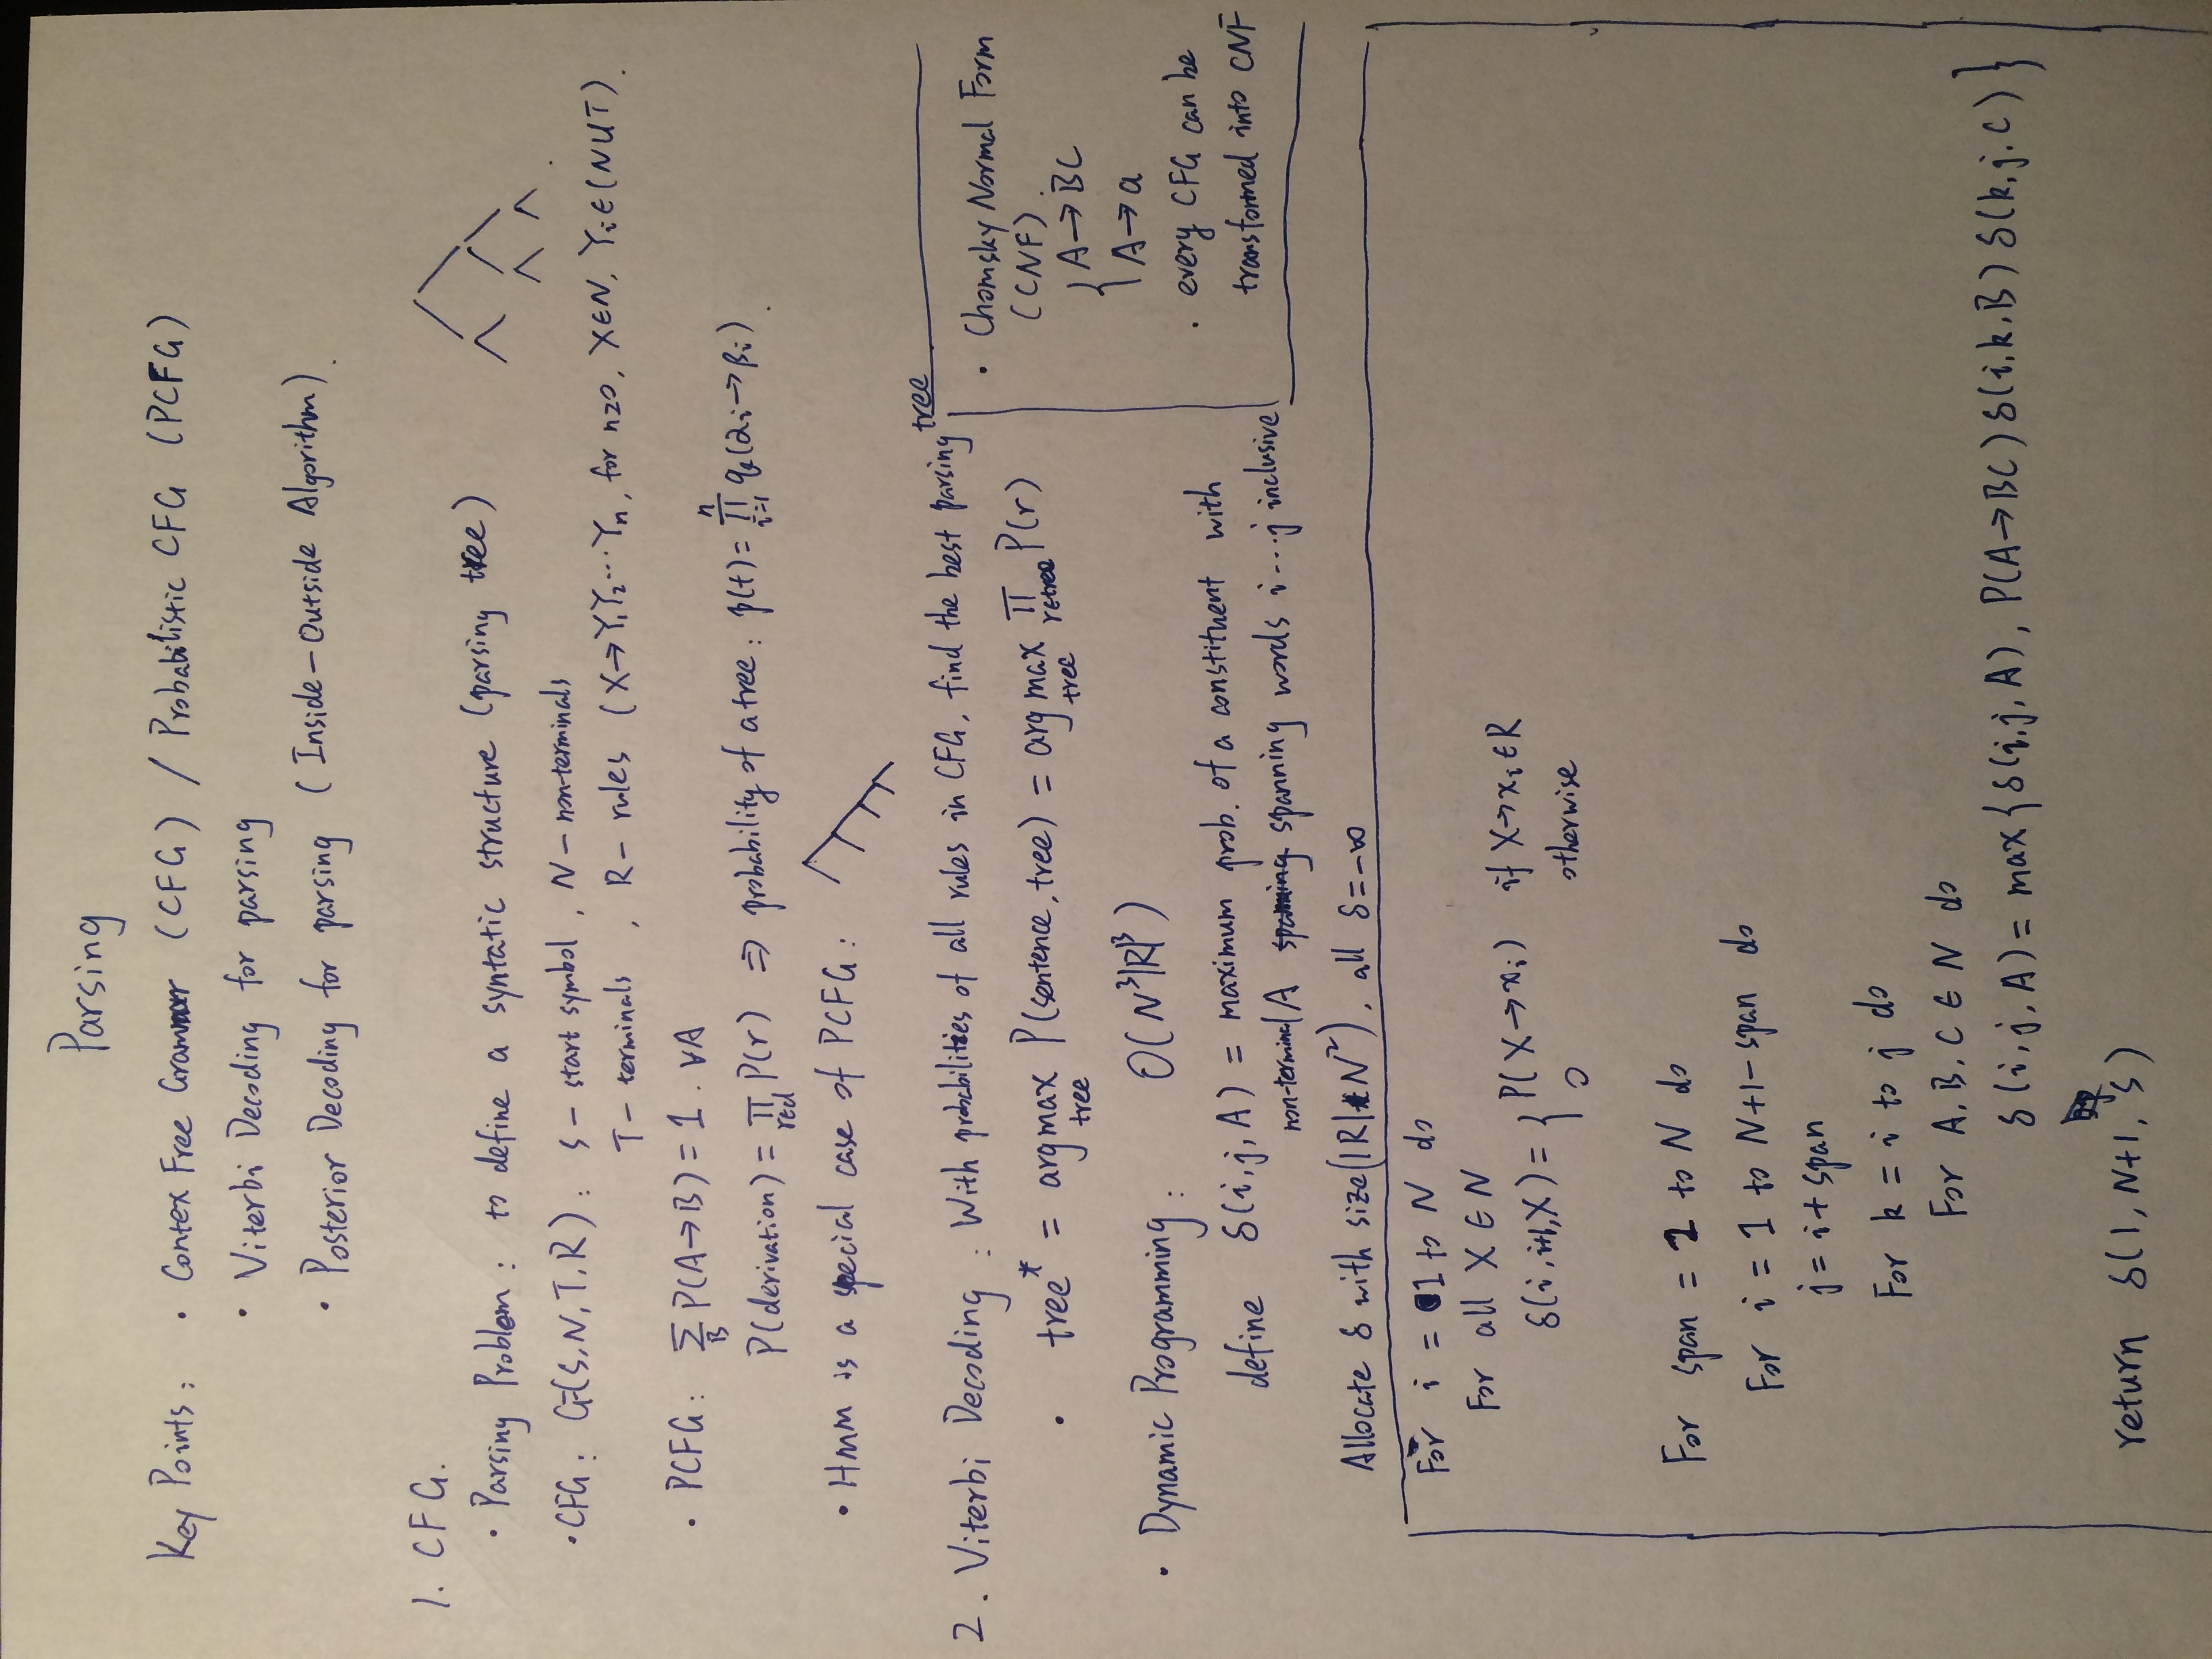 Parsing
Key Points: • Contex Free Grammar (CFG) / Probabilistic CFG (PCFG)
• Viterbi Decoding for parsing
• Posterior Decoding for parsing (Inside-Outside Algorithm).
1. CFG.
• Parsing Problem: to define a syntatic structure (parsing tree)
• CFG: G(S,N,T,R): S - start symbol, N - non-terminals
T - terminals, R - rules (X→Y₁Y₂⋯Yₙ, for n≥0, X∈N, Yᵢ∈(N∪T).
• PCFG: ∑_B P(A→B) = 1. ∀A
P(derivation) = ∏_{r∈d} P(r) ⇒ probability of a tree: p(t) = ∏_{i=1}^{n} q(αᵢ→βᵢ).
• HMM is a special case of PCFG:
2. Viterbi Decoding: With probabilities of all rules in CFG, find the best parsing tree
• tree* = argmax_{tree} P(sentence, tree) = arg max_{tree} ∏_{r∈tree} P(r)
• Dynamic Programming: O(N³|R|³)
define δ(i,j,A) = maximum prob. of a constituent with
non-terminal A spanning words i...j inclusive
• Chomsky Normal Form
(CNF).
{ A→BC
A→a
• every CFG can be
transformed into CNF
Allocate δ with size(|R|*N²), all δ=-∞
For i = 1 to N do
For all X ∈ N
δ(i,i+1,X) = { P(X→xᵢ) if X→xᵢ∈R
0 otherwise
For span = 2 to N do
For i = 1 to N+1-span do
j = i + span
For k = i to j do
For A,B,C ∈ N do
δ(i,j,A) = max{δ(i,j,A), P(A→BC)δ(i,k,B)δ(k,j,C)}
return δ(1,N+1,S)